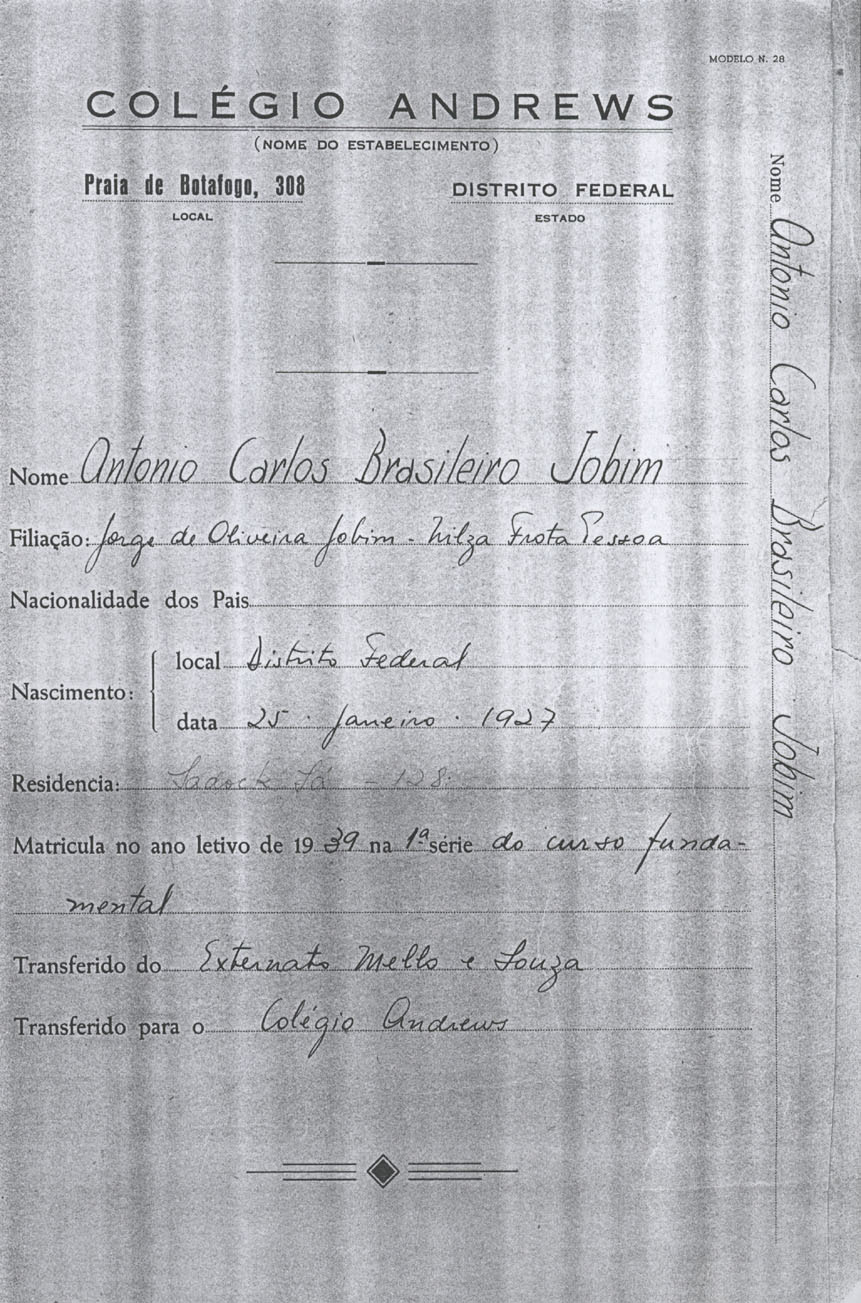 MODELO N. 28
COLÉGIO ANDREWS
(NOME DO ESTABELECIMENTO)
Praia de Botafogo, 308 DISTRITO FEDERAL
LOCAL ESTADO
Nome Antonio Carlos Brasileiro Jobim
Filiação: Jorge de Oliveira Jobim - Nilza Frota Pessoa
Nacionalidade dos Pais
Nascimento: local Distrito Federal
data 25 · Janeiro · 1927
Residencia: Sadock Sá - 128.
Matricula no ano letivo de 1939 na 1ª série do curso funda-
mental
Transferido do Externato Mello e Souza
Transferido para o Colégio Andrews
Nome Antonio Carlos Brasileiro Jobim